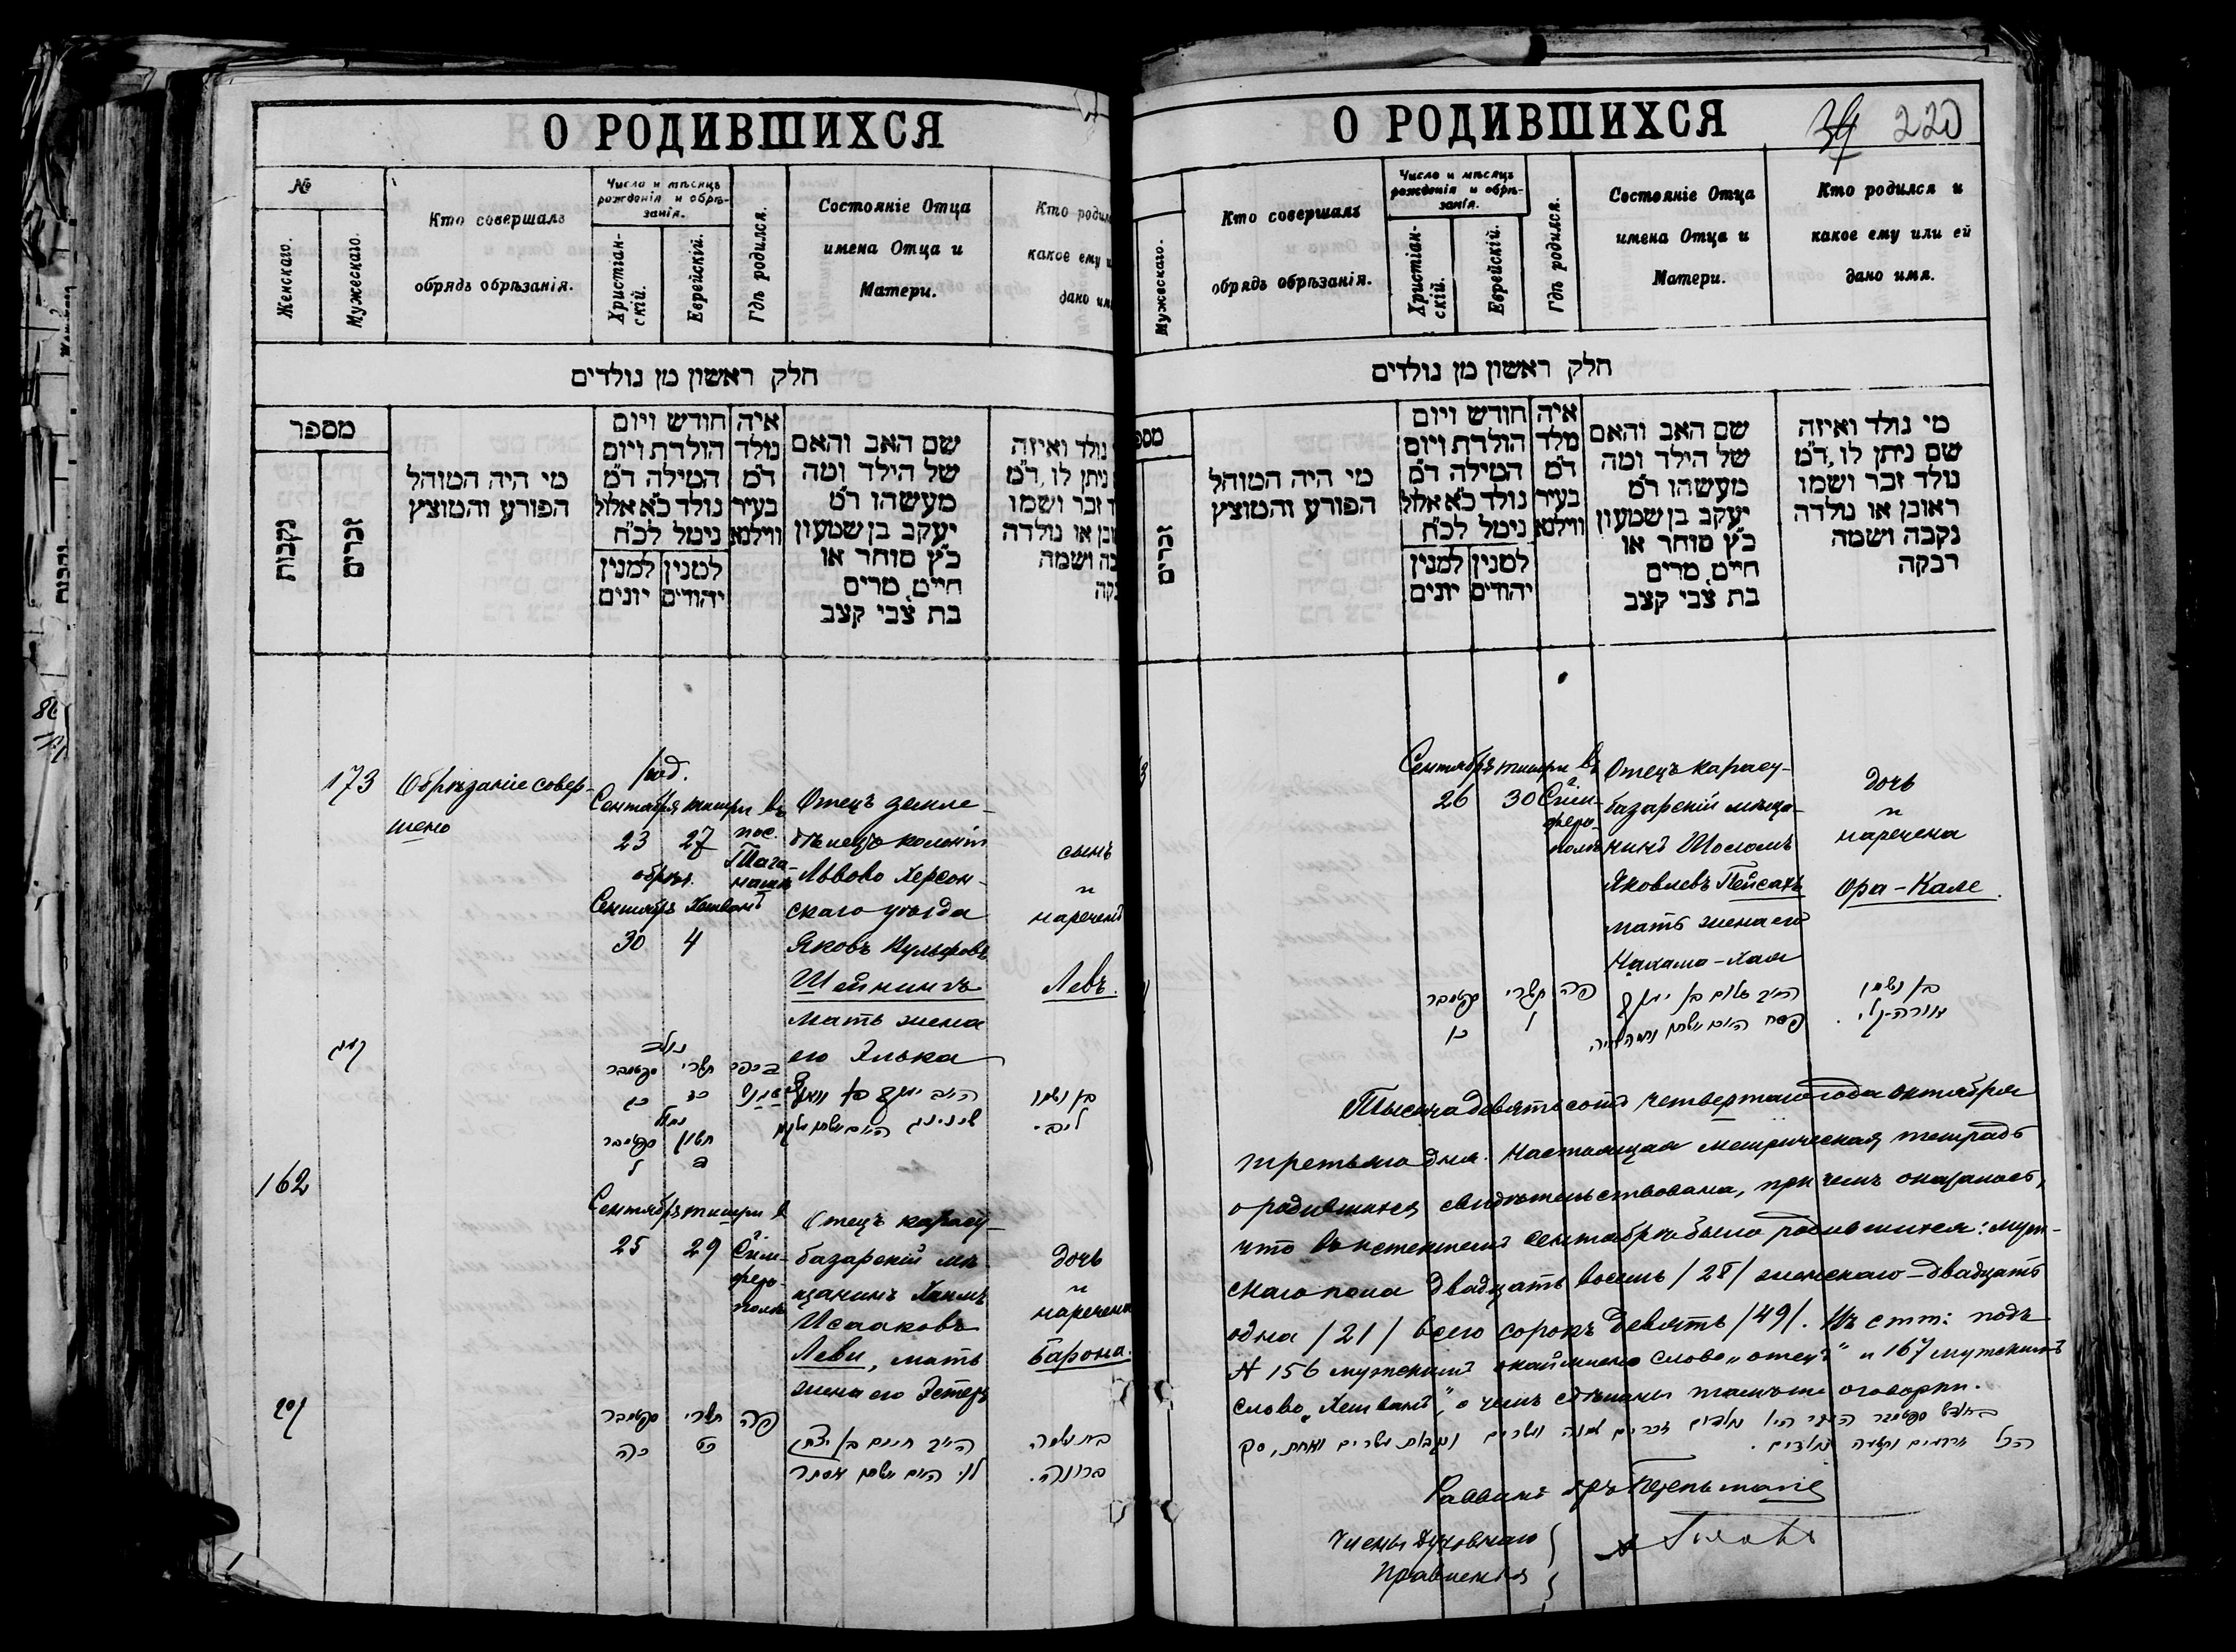 О РОДИВШИХСЯ
№
Женскаго.
Мужескаго.
Кто совершалъ
обрядъ обрѣзанія.
Число и мѣсяцъ
рожденія и обрѣ-
занія.
Христіан-
скій.
Еврейскій.
Гдѣ родился.
Состояніе Отца
имена Отца и
Матери.
Кто
какое ему
дано
חלק ראשון מן נולדים
מספר
נקבות
זכרים
מי היה המוהל
הפורע והמוצץ
חודש ויום
הולדת ויום
המילה ד"מ
נולד כ"א אלול
נימל לכ"ח
למנין יהודים
למנין יונים
איה
נולד
ד"מ
בעיר
ווילנא
שם האב והאם
של הילד ומה
מעשהו ד"מ
יעקב בן שמעון
כ"ץ סוחר או
חיים, מרים
בת צבי קצב
נולד ואיזה
ניתן לו, ד"מ
זכר ושמו
או נולדה
ושמה
173
Обрѣзаніе совер-
шено
род.
Сентября тишри въ
23 27 пос.
обрѣз.
Сентябрь Хешванъ
30 4
Отецъ земле-
дѣлецъ колоніи
Львово Херсон-
скаго уѣзда
Яковъ Вульфовъ
Шейнингъ
мать жена
его Элька
сынъ
и
нареченъ
Левъ.
נולד
ספטמבר תשרי
כג כז
נמול
ספטמבר חשון
ל ד
בן ושמו
ליב.
162
Сентябрь тишри в
25 29 Сим-
феро-
полѣ
Отецъ карасу-
базарскій мѣ-
щанинъ Хаимъ
Исааковъ
Леви, мать
жена его Эстеръ
дочь
и
наречена
Барона.
ספטמבר תשרי פה
כה כט
האב חיים בן יצחק
לוי האם אשתו אסתר
בת ושמה
ברונה.
О РОДИВШИХСЯ
39 220
Мужескаго.
Кто совершалъ
обрядъ обрѣзанія.
Число и мѣсяцъ
рожденія и обрѣ-
занія.
Христіан-
скій.
Еврейскій.
Гдѣ родился.
Состояніе Отца
имена Отца и
Матери.
Кто родился и
какое ему или ей
дано имя.
חלק ראשון מן נולדים
זכרים
מי היה המוהל
הפורע והמוצץ
חודש ויום
הולדת ויום
המילה ד"מ
נולד כ"א אלול
נימל לכ"ח
למנין יהודים
למנין יונים
איה
נולד
ד"מ
בעיר
ווילנא
שם האב והאם
של הילד ומה
מעשהו ד"מ
יעקב בן שמעון
כ"ץ סוחר או
חיים, מרים
בת צבי קצב
מי נולד ואיזה
שם ניתן לו, ד"מ
נולד זכר ושמו
ראובן או נולדה
נקבה ושמה
רבקה
Сентябрь тишри въ
26 30 Сим-
феро-
полѣ
Отецъ карасу-
базарскій мѣща-
нинъ Шоломъ
Яковлевъ Пейсахъ
мать жена его
Нахама-Хая
дочь
и
наречена
Ора-Кале.
ספטמבר תשרי פה
כו ל
Тысяча девятьсотъ четвертаго года октября
третьяго дня. Настоящая метрическая тетрадь
о родившихся свидѣтельствована, при чемъ оказалось,
что въ истекшемъ сентябрѣ было родившихся: муж-
скаго пола двадцать восемь /28/ женскаго – двадцать
одна /21/ всего сорокъ девять /49/. Въ стт: подъ
№ 156 мужскимъ слово „отецъ“ и 167 мужскимъ
слово „Хешванъ“, о чемъ сдѣланы тамъ же оговорки.
Раввинъ
Члены Духовнаго
Правленія